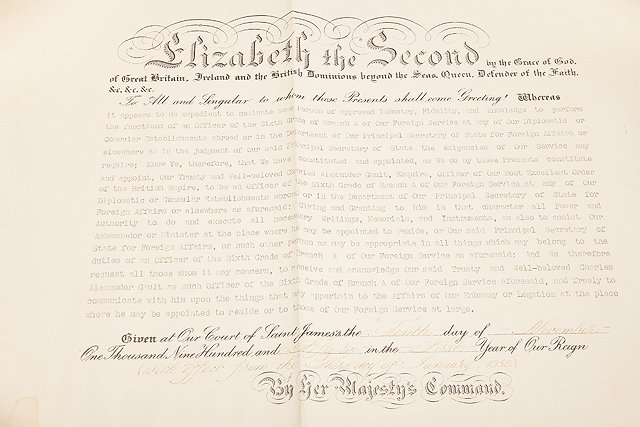 Elizabeth the Second by the Grace of God,
of Great Britain, Ireland and the British Dominions beyond the Seas, Queen, Defender of the Faith,
&c, &c, &c.
To All and Singular to whom these Presents shall come Greeting! Whereas
it appears to Us expedient to nominate some Person of approved Industry, Fidelity, and Knowledge to perform
the functions of an Officer of the Sixth Grade of Branch A of Our Foreign Service at any of Our Diplomatic or
Consular Establishments abroad or in the Department of Our Principal Secretary of State for Foreign Affairs or
elsewhere as in the Judgment of Our said Principal Secretary of State the exigencies of Our Service may
require; Know Ye, therefore, that We have constituted and appointed, as We do by these Presents constitute
and appoint, Our Trusty and Well-beloved Charles Alexander Gault, Esquire, Officer of Our Most Excellent Order
of the British Empire, to be an Officer of the Sixth Grade of Branch A of Our Foreign Service at any of Our
Diplomatic or Consular Establishments abroad or in the Department of Our Principal Secretary of State for
Foreign Affairs or elsewhere as aforesaid: Giving and Granting to him in that character all Power and
Authority to do and execute all necessary Writings, Memorials, and Instruments, as also to assist Our
Ambassador or Minister at the place where he may be appointed to reside, or Our said Principal Secretary of
State for Foreign Affairs, or such other person as may be appropriate in all things which may belong to the
duties of an Officer of the Sixth Grade of Branch A of Our Foreign Service as aforesaid: And We therefore
request all those whom it may concern, to receive and acknowledge Our said Trusty and Well-beloved Charles
Alexander Gault as such Officer of the Sixth Grade of Branch A of Our Foreign Service aforesaid, and freely to
communicate with him upon the things that may appertain to the Affairs of Our Embassy or Legation at the place
where he may be appointed to reside or to those of Our Foreign Service at large.
Given at Our Court of Saint James's the day of
One Thousand Nine Hundred and in the First Year of Our Reign
(with effect from the January, )
By Her Majesty's Command.